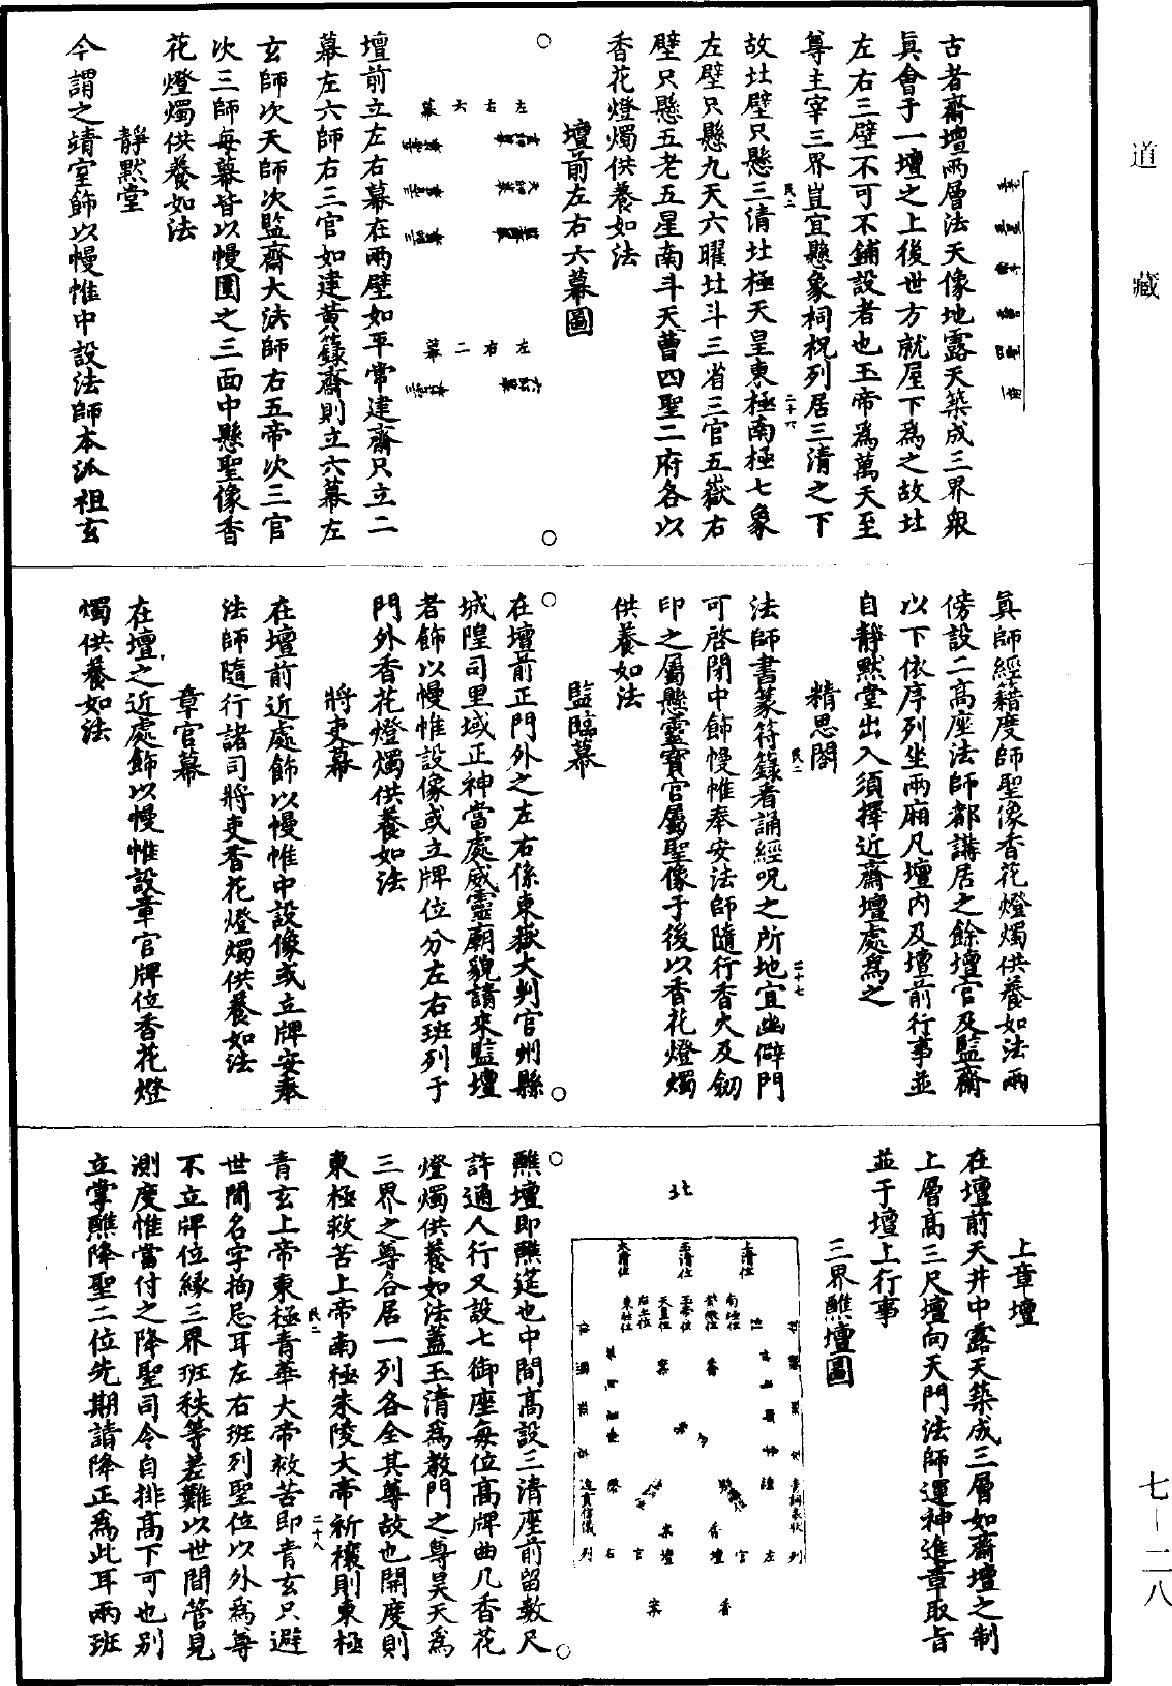 道藏
古者齋壇兩層法天像地露天築成三界衆
眞會于一壇之上後世方就屋下爲之故壯
左右三壁不可不鋪設者也玉帝爲萬天至
尊主宰三界豈宜懸象祠祝列居三清之下
故北壁只懸三清北極天皇東極南極七象
左壁只懸九天六曜北斗三省三官五嶽右
壁只懸五老五星南斗天曹四聖二府各以
香花燈燭供養如法
壇前左右六幕圖
左右六幕
左右二幕
壇前立左右幕在兩壁如平常建齋只立二
幕左六師右三官如建黃籙齋則立六幕左
玄師次天師次監齋大法師右五帝次三官
次三師每幕皆以幔圍之三面中懸聖像香
花燈燭供養如法
靜默堂
今謂之靖室飾以幔惟中設法師本派祖玄
眞師經籍度師聖像香花燈燭供養如法兩
傍設二高座法師都講居之餘壇官及監齋
以下依序列坐兩廂凡壇內及壇前行事並
自靜默堂出入須擇近齋壇處爲之
精思閣
法師書篆符籙者誦經呪之所地宜幽僻門
可啓閉中飾幔惟奉安法師隨行香火及劒
印之屬懸靈寶官屬聖像于後以香花燈燭
供養如法
監臨幕
在壇前正門外之左右係東嶽大判官州縣
城隍司里域正神當處威靈廟貌請來監壇
者飾以幔惟設像或立牌位分左右班列于
門外香花燈燭供養如法
將吏幕
在壇前近處飾以幔惟中設像或立牌安奉
法師隨行諸司將吏香花燈燭供養如法
章官幕
在壇之近處飾以幔惟設章官牌位香花燈
燭供養如法
上章壇
在壇前天井中露天築成三層如齋壇之制
上層高三尺壇向天門法師運神進章取旨
並于壇上行事
三界醮壇圖
北
上清位
玉清位
太清位
南極位
紫微位
玉帝位
天皇位
后土位
東極位
醮壇即醮筵也中間高設三清座前留數尺
許通人行又設七御座每位高牌曲几香花
燈燭供養如法蓋玉清爲教門之尊昊天爲
三界之尊各居一列各全其尊故也開度則
東極救苦上帝南極朱陵大帝祈禳則東極
青玄上帝東極青華大帝救苦即青玄只避
世間名字拘忌耳左右班列聖位以外爲尊
不立牌位緣三界班秩等差難以世間管見
測度惟當付之降聖司令自排高下可也別
立掌醮降聖二位先期請降正爲此耳兩班
七-二八